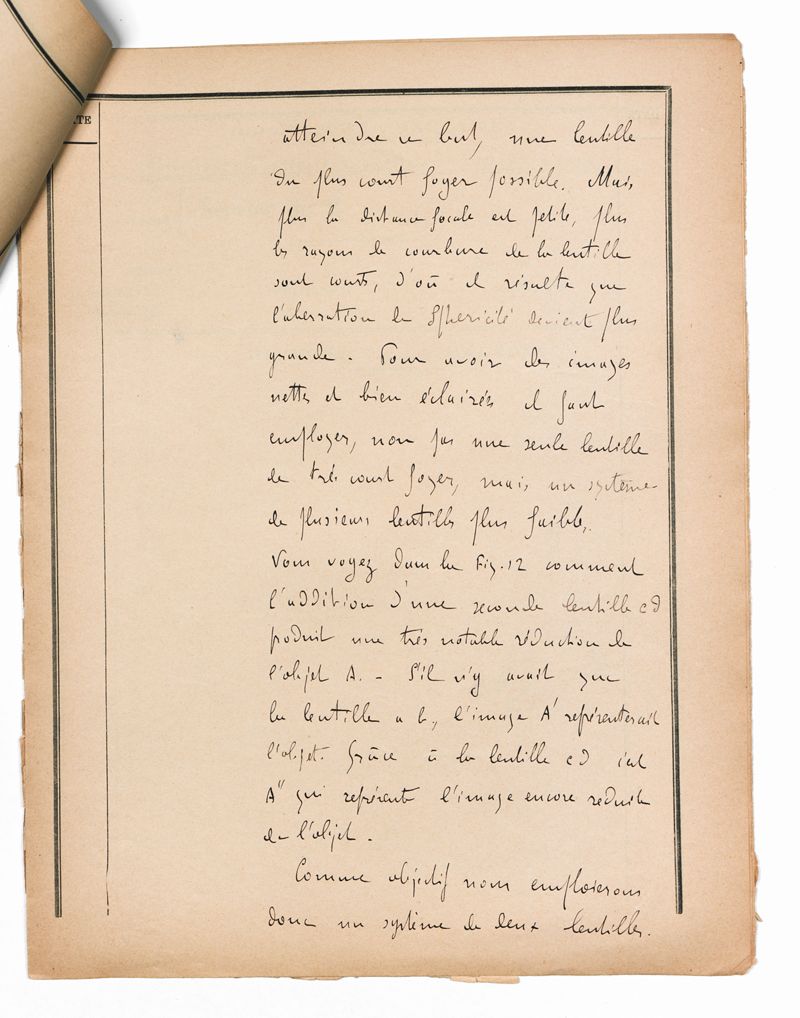 TE
atteindre ce but, une lentille
du plus court foyer possible. Mais
plus la distance focale est petite, plus
les rayons de courbure de la lentille
sont courts, d'où il résulte que
l'aberration de Sphericité devient plus
grande. Pour avoir des images
nettes et bien éclairées il faut
employer, non pas une seule lentille
de très court foyer, mais un système
de plusieurs lentilles plus faibles.
Vous voyez dans la Fig. 12 comment
l'addition d'une seconde lentille cd
produit une très notable réduction de
l'objet A. - S'il n'y avait que
la lentille a b, l'image A' représenterait
l'objet. Grâce à la lentille cd c'est
A" qui représente l'image encore reduite
de l'objet.
Comme objectif nous emploierons
donc un système de deux lentilles.